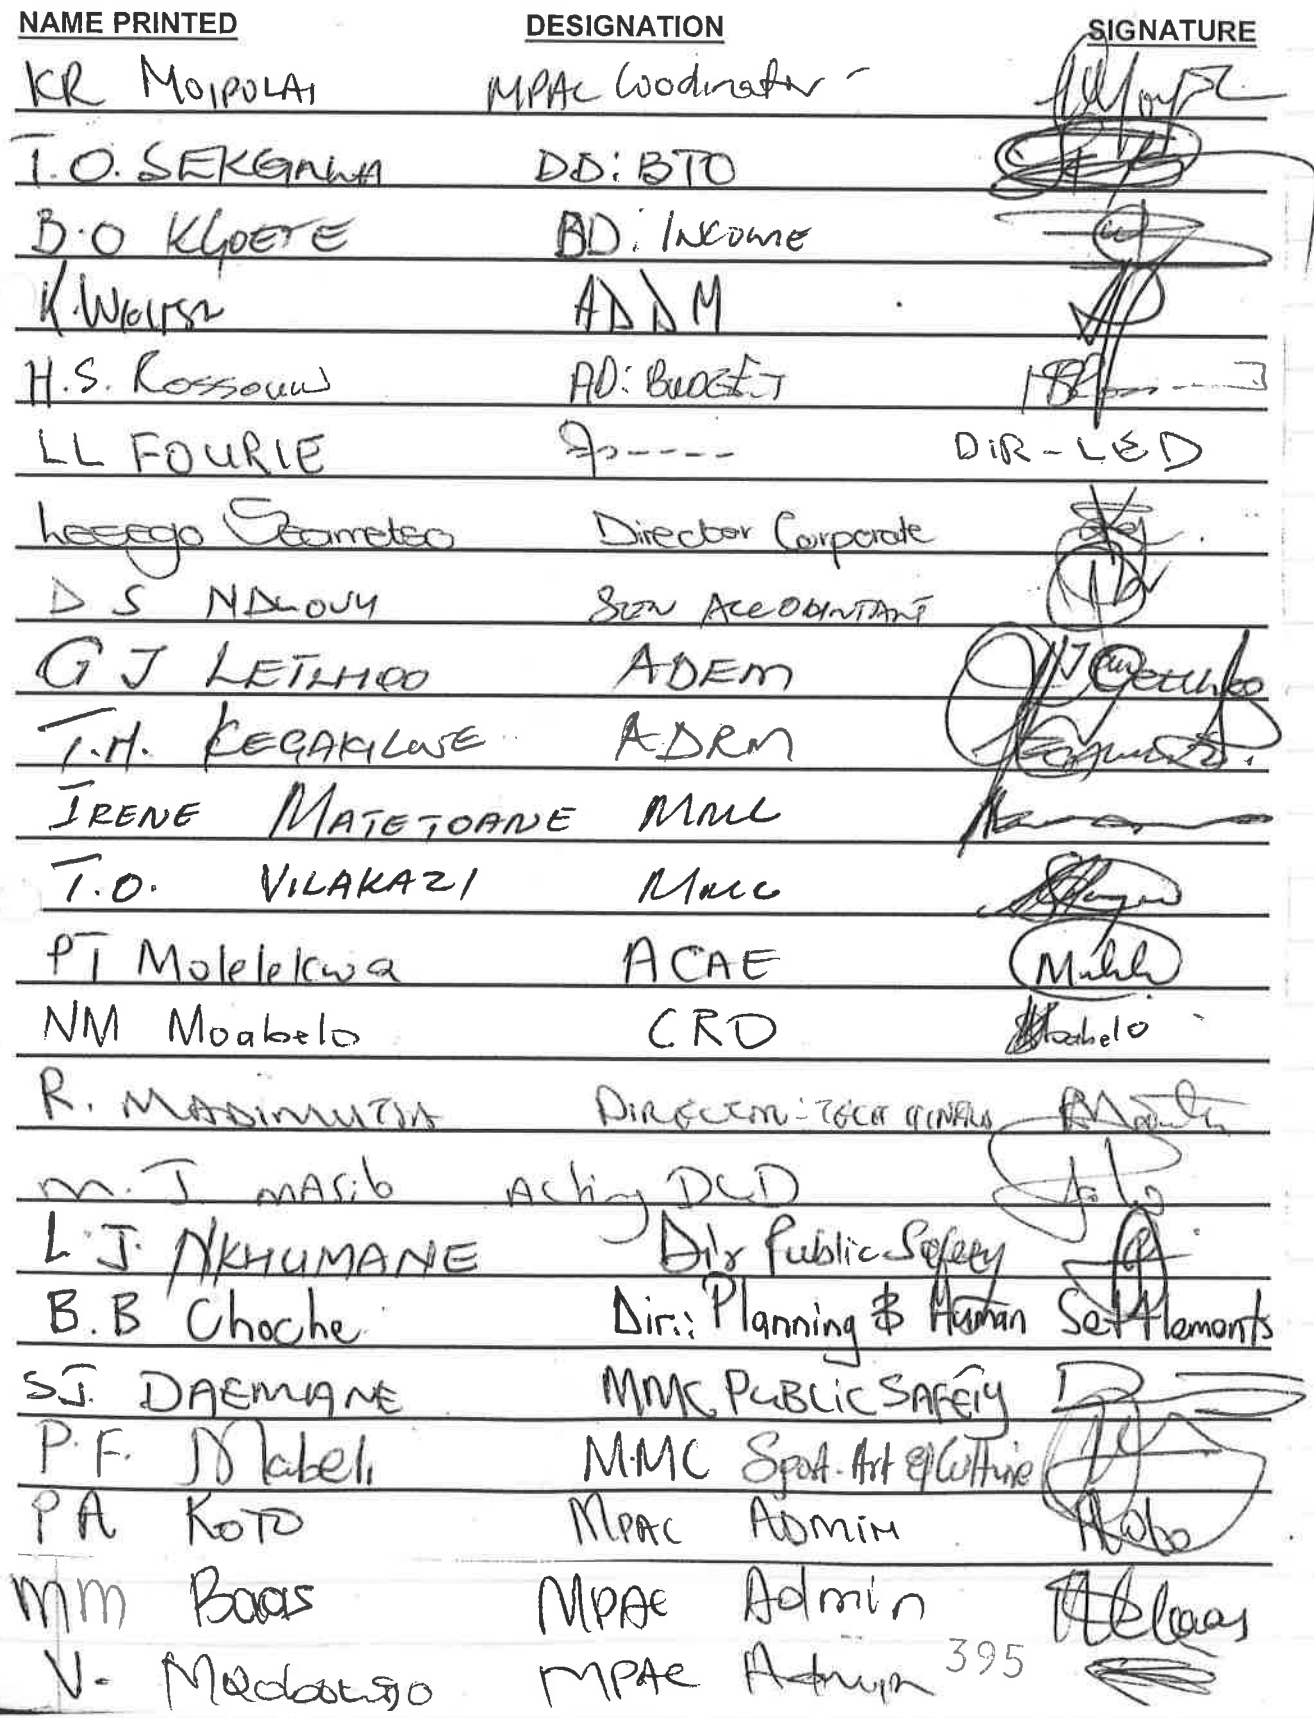 NAME PRINTED DESIGNATION SIGNATURE
KR MOIPOLAI MPAC Coodinator
T.O. SEKGALWA DD: BTO
B.O KGOETE BD: INCOME
K. ADDM
H.S. Rossouw AD: BUDGET
LL FOURIE DIR-LED
Lesego Seametso Director Corporate
D S NDLOVU SEN ACCOUNTANT
G J LETLHOO ADEM
T.H. KEGAKILWE ADRM
IRENE MATETOANE MMC
T.O. VILAKAZI MMC
PT Molelekwa ACAE
NM Moabelo CRO Moabelo
R. MADIMUTSA DIRECTOR: TECH
M.J MASIB Acting DCD
L.J. NKHUMANE Dir Public Safety
B.B Choche Dir.: Planning & Human Settlements
SJ. DAEMANE MMC PUBLIC SAFETY
P.F. Mabeli MMC Sport. Art & Culture
PA KOTO MPAC ADMIN
MM Baas MPAC Admin
V. MPAC Admin 395